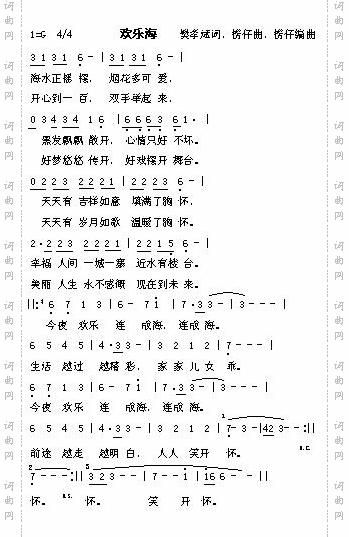 1=G 4/4 欢乐海 樊孝斌词，楞仔曲，楞仔编曲
3 1 3 1 6 - | 3 1 3 1 6 - |
海水正摇 摆， 烟花多可 爱，
开心到一 百， 双手举起 来，
0 3 4 3 4 1 6 | 6 6 6 3 6 1 · |
黑发飘飘 散开， 心情只好 不坏。
好梦悠悠 传开， 好戏摆开 舞台。
0 2 2 3 2 2 2 1 | 2 2 2 3 6 - |
天天有 吉祥如意 填满了胸 怀，
天天有 岁月如歌 温暖了胸 怀。
2 · 2 2 3 2 2 2 1 | 2 2 1 5 6 - |
幸福 人间 一城一寨 近水有楼 台。
美丽 人生 永不感慨 现在到未 来。
6 7 1 3 | 6 - 7 1 | 7 · 3 3 - | 3 - - - |
今夜 欢乐 连 成海， 连成 海。
6 5 4 5 | 4 · 3 3 - | 3 2 1 2 | 7 - - - |
生活 越过 越精 彩， 家 家 儿 女 乖。
6 7 1 3 | 6 - 7 1 | 7 · 3 3 - | 3 - - - |
今夜 欢乐 连 成海， 连成 海。
6 5 4 5 | 4 · 3 3 - | 3 2 1 2 | 7 - 3 - | 4 2 3 - - :||
前途 越走 越明 白， 人人 笑开 怀。 D.C.
7 - - - :|| 3 2 3 - - | 7 - - 1 | 1 6 6 - - ||
怀。 D.S. 怀。 笑 开 怀。
词曲网